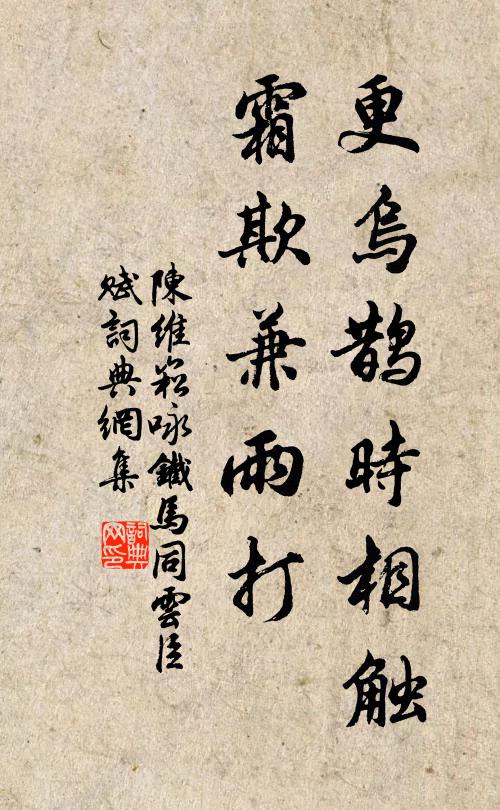 更烏鵲時相触
霜欺兼雨打
陳維崧咏鐵馬同雲臣
賦詞典網集
詞典网印